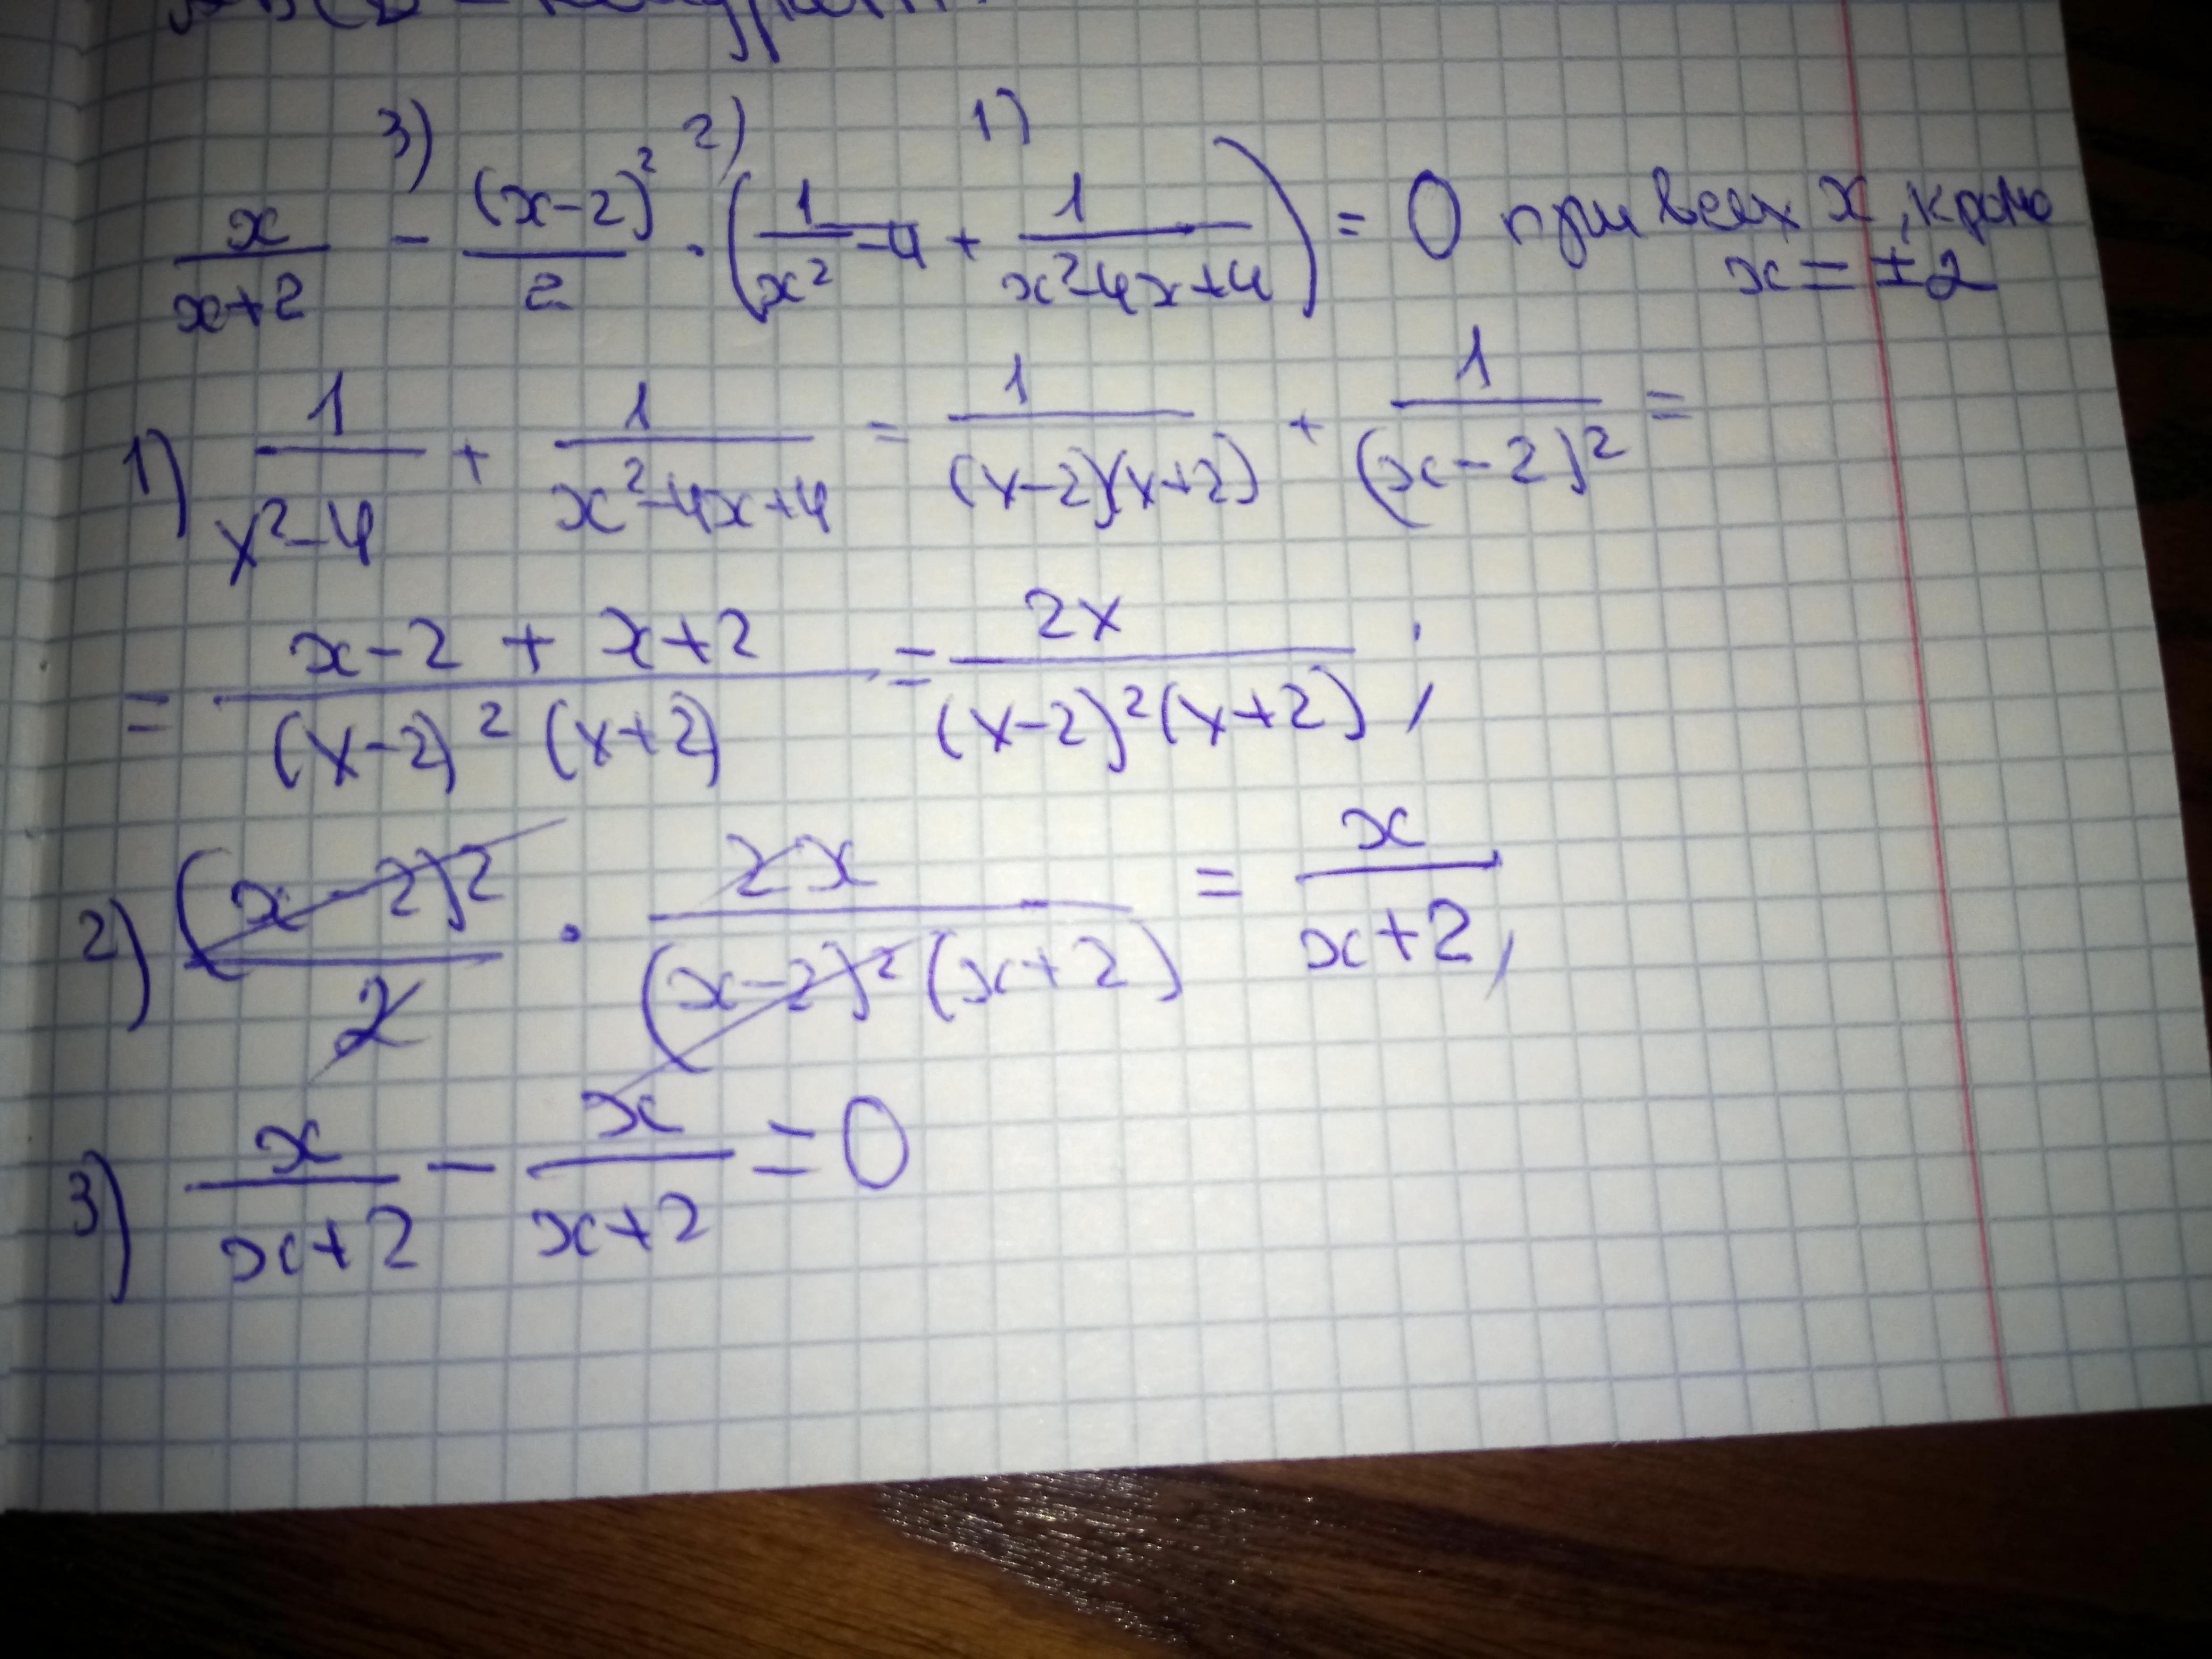 3) 2) 1)
x/(x+2) - (x-2)²/2 · (1/(x²-4) + 1/(x²-4x+4)) = 0 при всех x, кроме
x = ±2
1) 1/(x²-4) + 1/(x²-4x+4) = 1/((x-2)(x+2)) + 1/(x-2)² =
= (x-2 + x+2)/((x-2)²(x+2)) = 2x/((x-2)²(x+2));
2) (x-2)²/2 · 2x/((x-2)²(x+2)) = x/(x+2),
3) x/(x+2) - x/(x+2) = 0